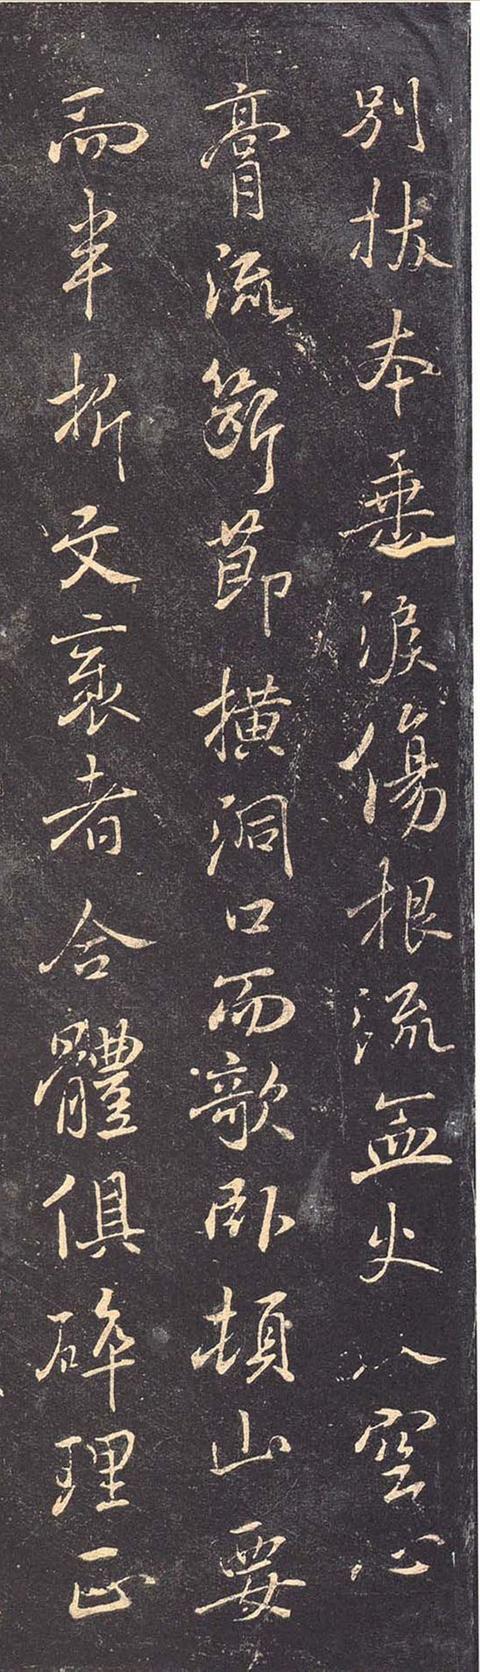 別拔本垂淚傷根流血火入空心
膏流斷節橫洞口而欹臥頓山要
而半折文衺者合體俱碎理正